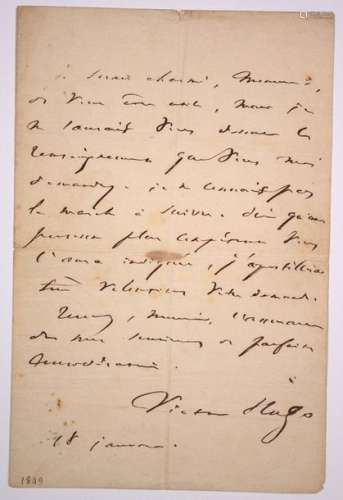 je serais charmé, Monsieur,
de vous être utile, mais je
ne saurais vous donner les
renseignements que vous me
demandez. je ne connais pas
la marche à suivre. dès qu'une
personne plus compétente vous
l'aura indiquée, j'apostillerai
très volontiers votre demande.
Recevez, Monsieur, l'assurance
de mes sentiments de parfaite
considération
Victor Hugo
18 janvier.